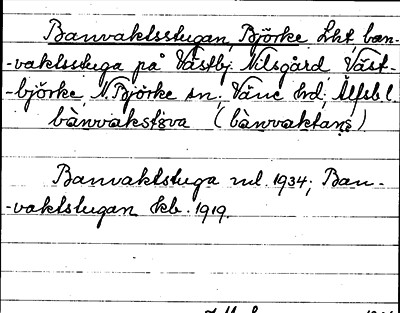 Banvaktsstugan, Björke Lht, ban-
-vaktsstuga på Västbj. Nilsgård, Väst-
-björke, N. Björke sn, Väne hd, Älfsb. l.
bànvakstöva (bànvaktans)
Banvaktstuga ml. 1934; Ban-
-vaktstugan kb. 1919.